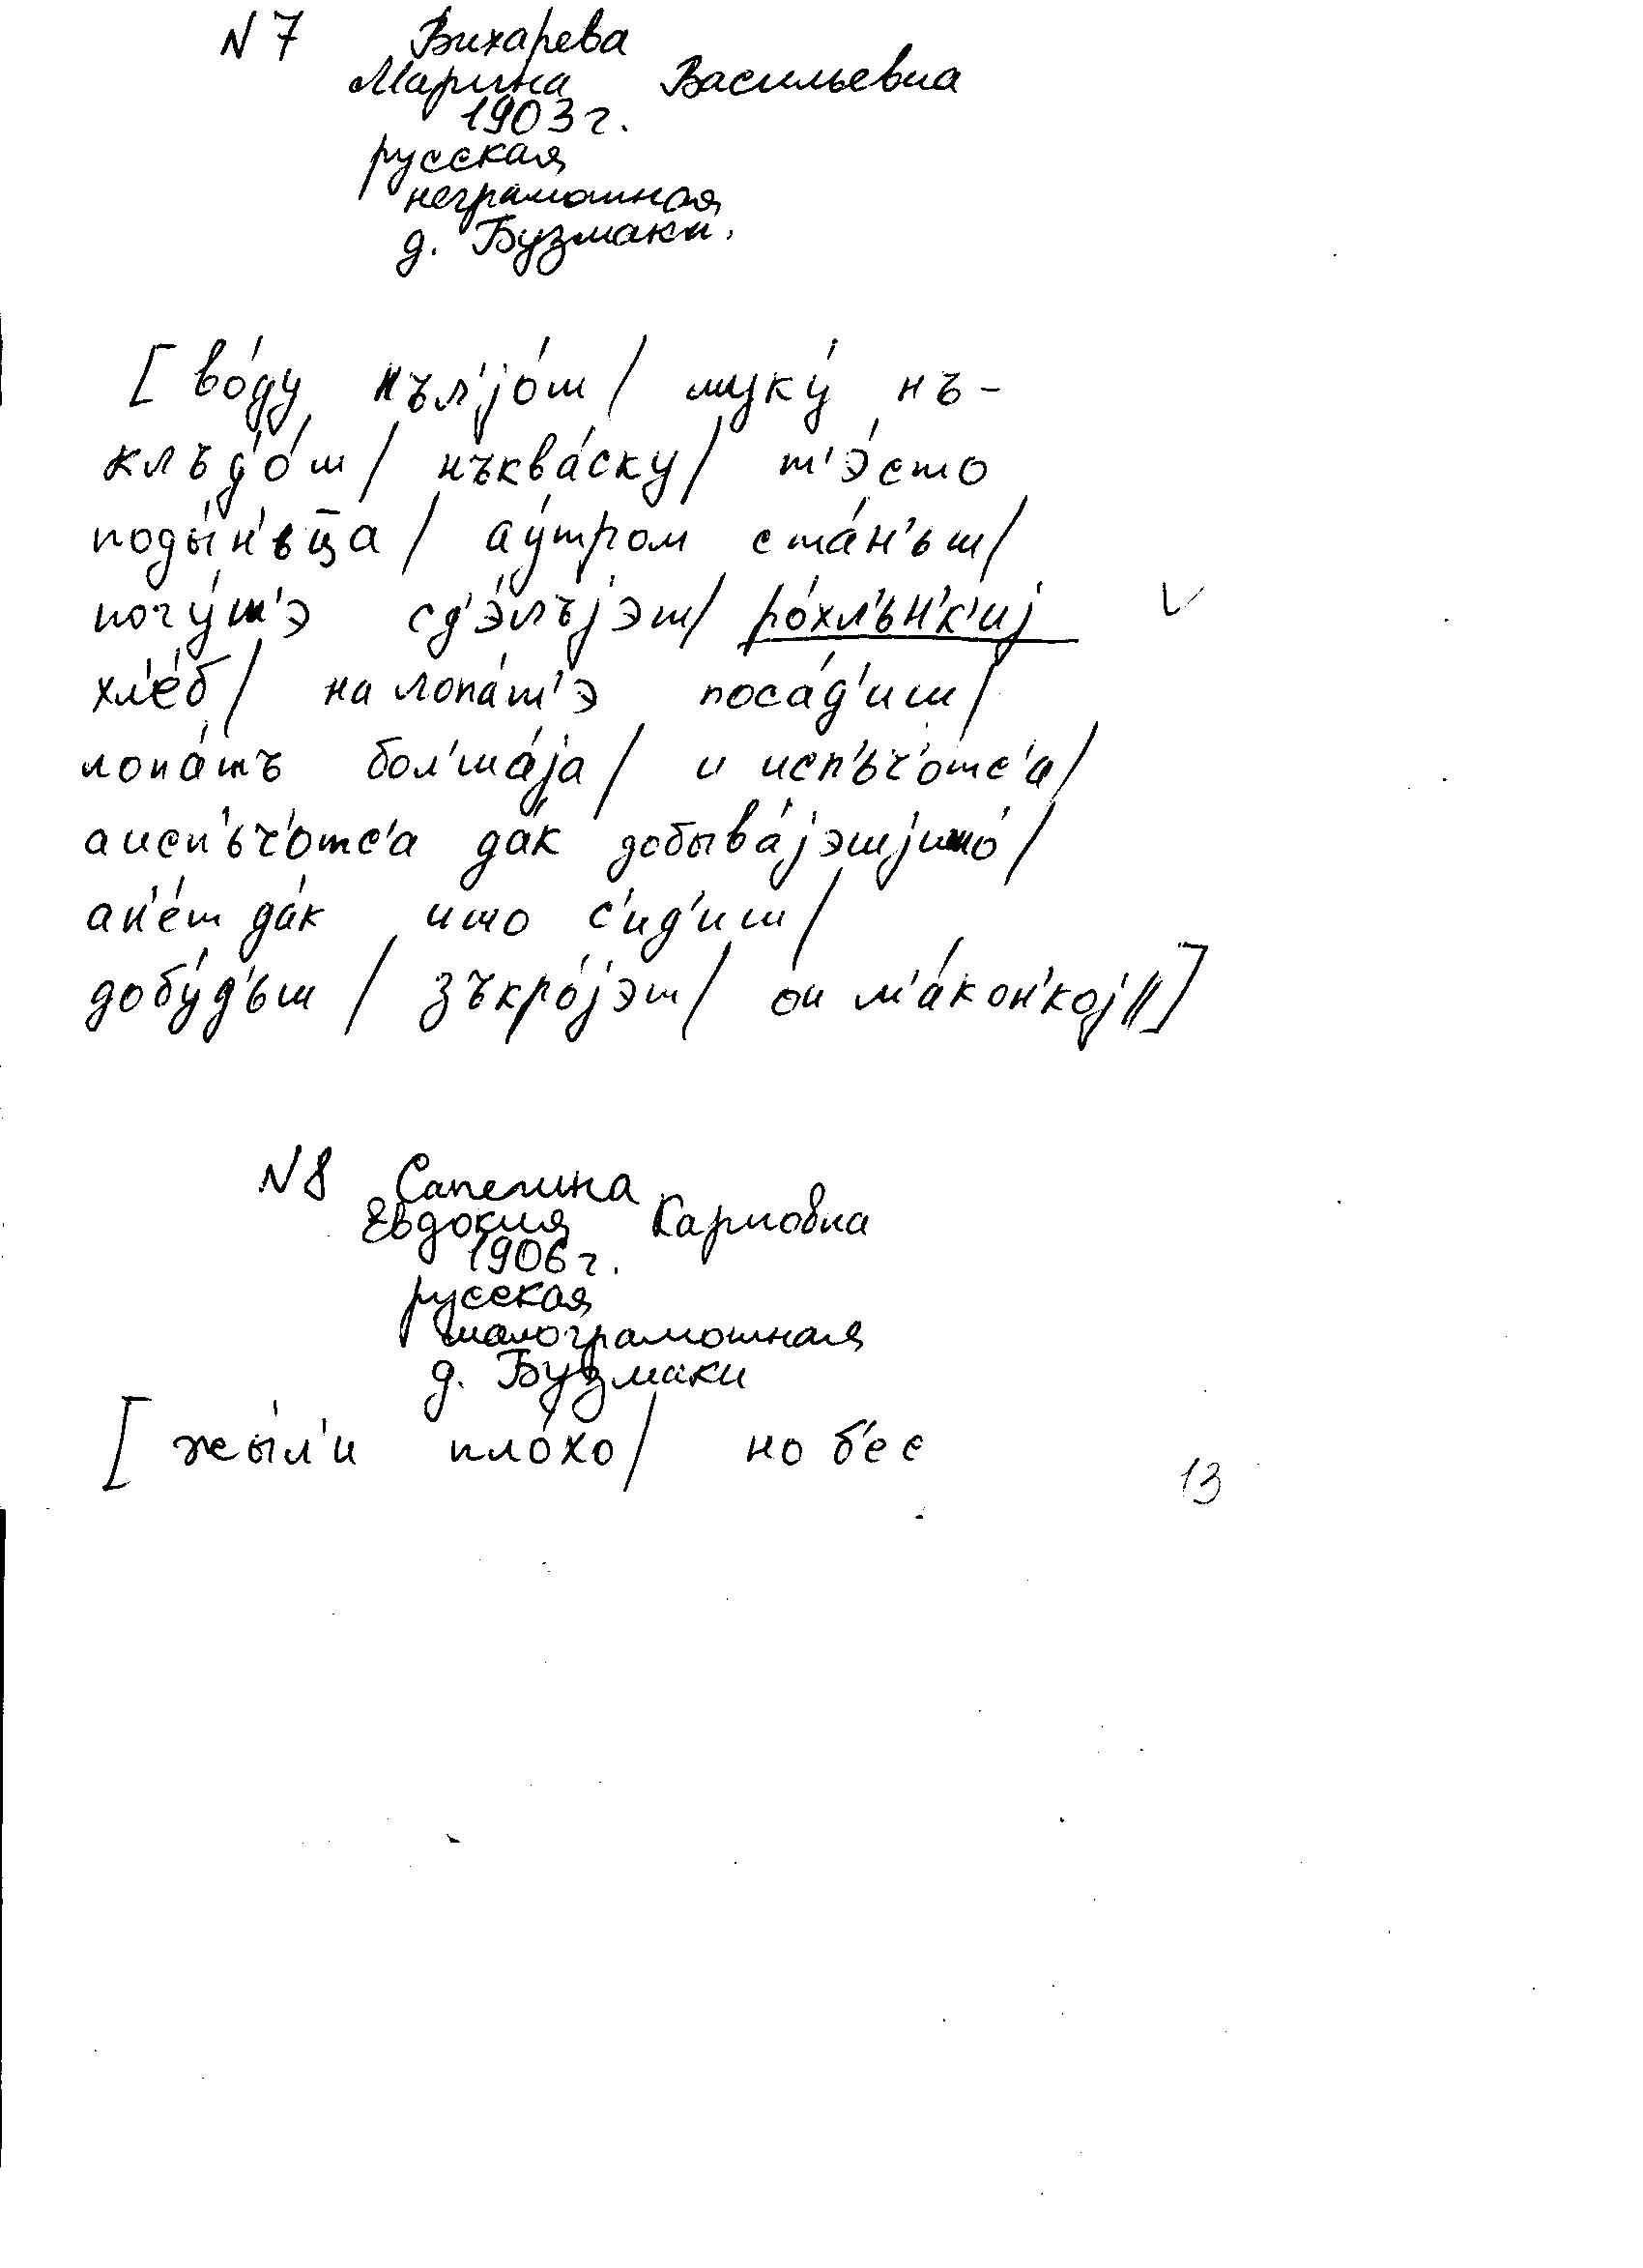 N 7 Вихарева
Марина Васильевна
1903 г.
русская
неграмотная
д. Бузмаки.
[ во́ду нъл'jо́ш / муку́ нъ-
клъд'о́ш / нъква́ску / т'э́сто
поды́н'ьц̄а / ау́тром ста́н'ьш /
почу́т'э сд'э́лъjэш / ро́хл'ьн'к'иj ✓
хл'е́б / на лопа́т'э поса́д'иш /
лопа́тъ бол'ша́jа / и исп'ьч'о́тс'а /
аисп'ьч'о́тс'а да́к добыва́jэш
ан'е́т да́к ишо с'ид'и́ш /
добу́д'ьш / зъкро́jэш / он м'а́кон'коj // ]
N 8 Сапегина
Евдокия Карповна
1906 г.
русская
малограмотная
д. Бузмаки
[ жы́л'и пло́хо / но б'ес
13